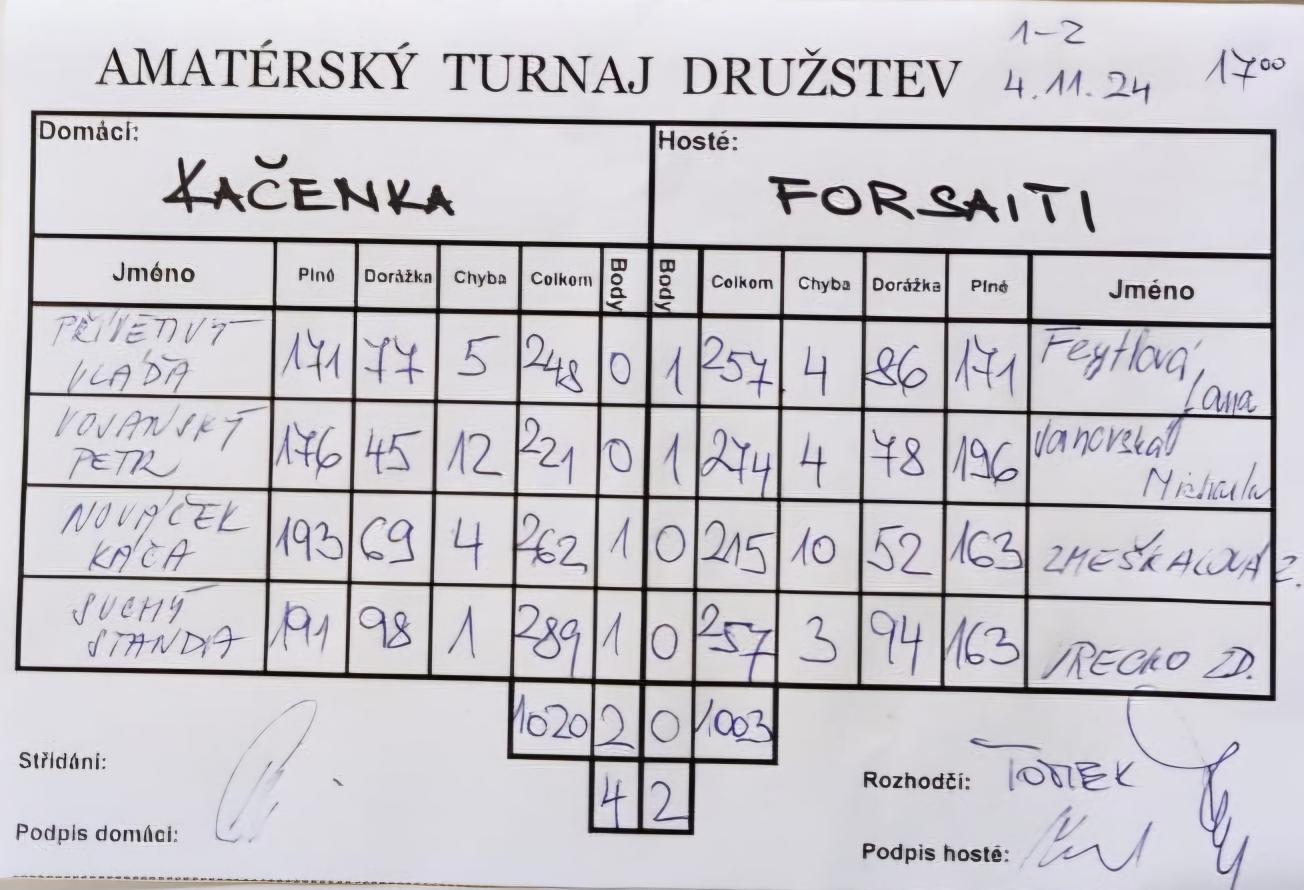 1-2
AMATÉRSKÝ TURNAJ DRUŽSTEV 4.11.24 17⁰⁰
Domácí: Hosté:
KAČENKA FORSAITI
Jméno Plné Dorážka Chyba Celkem Body Body Celkem Chyba Dorážka Plné Jméno
PŘÍVĚTIVÝ VLAĎA 171 77 5 248 0 1 257 4 86 171 Feytlová Lana
VOJANSKÝ PETR 176 45 12 221 0 1 274 4 78 196 Janovská Michaela
NOVÁČEK KÁČA 193 69 4 262 1 0 215 10 52 163 ZMEŠKALOVÁ Z.
SUCHÝ STANDA 191 98 1 289 1 0 257 3 94 163 ZD.
1020 2 0 1003
4 2
Střídání:
Rozhodčí: TOMEK
Podpis domácí:
Podpis hosté: